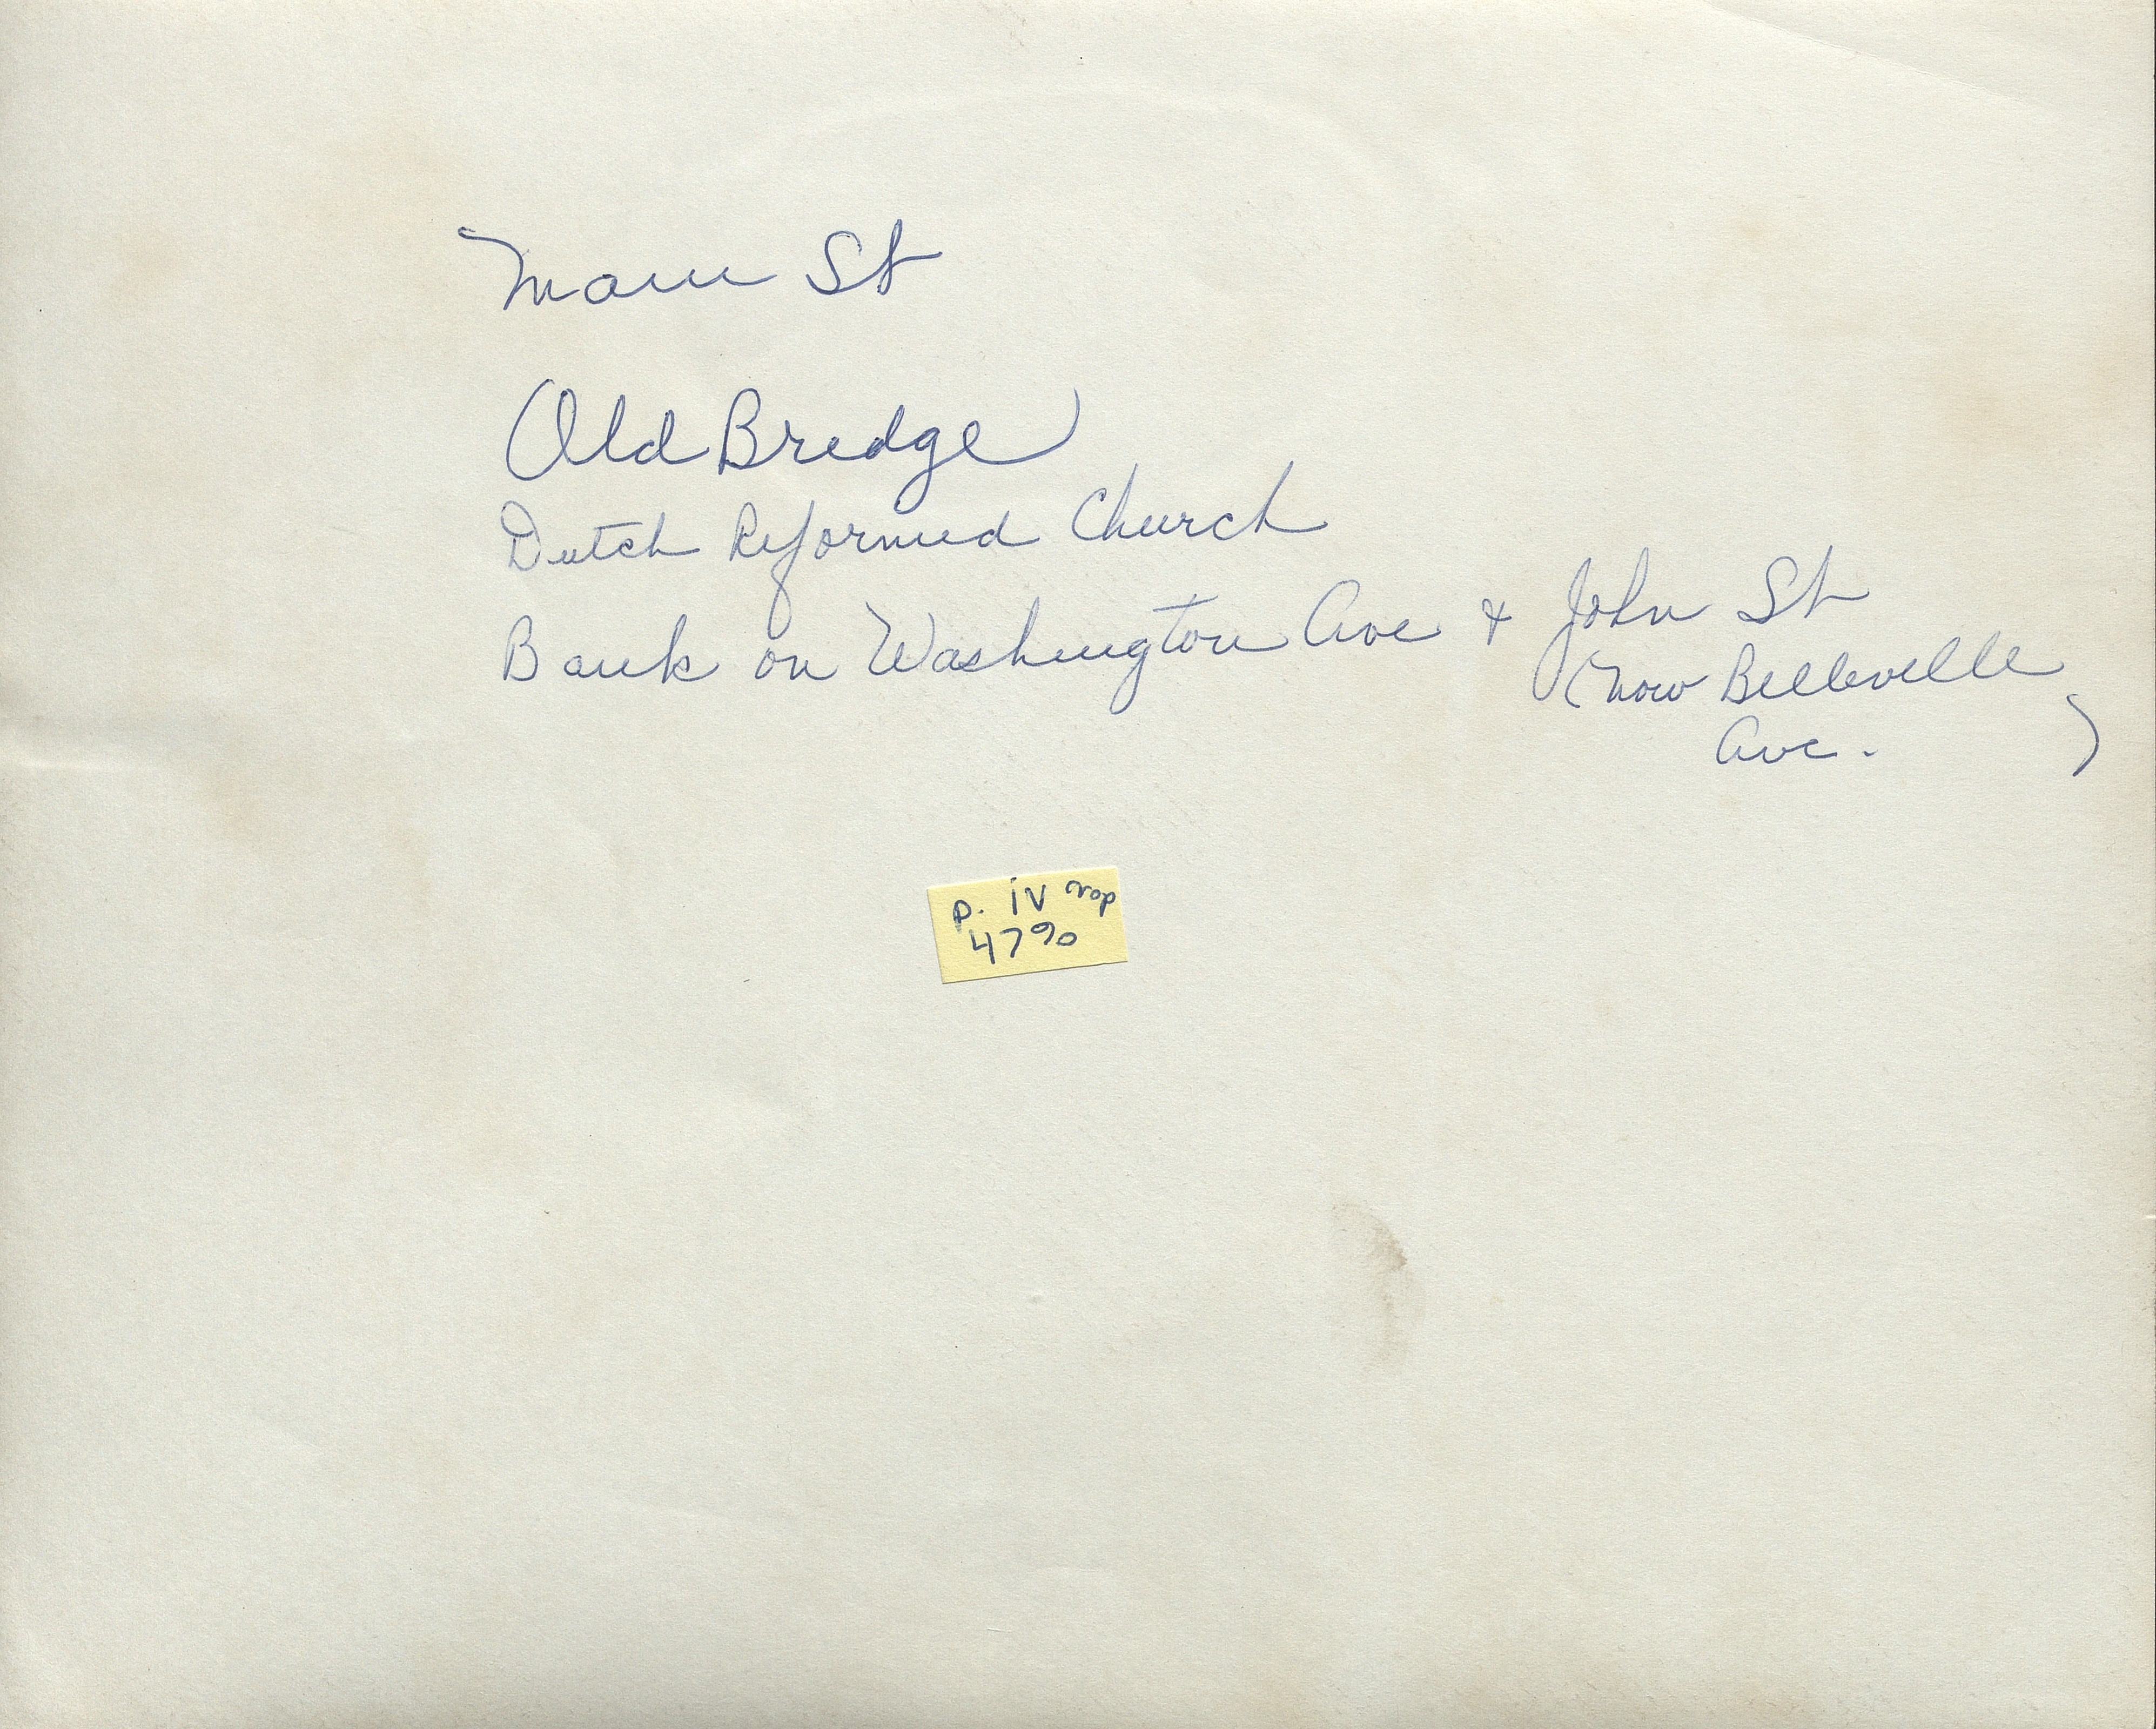 Main St
Old Bridge
Dutch Reformed Church
Bank on Washington Ave + John St
(now Belleville
Ave. )
p. iv
47%